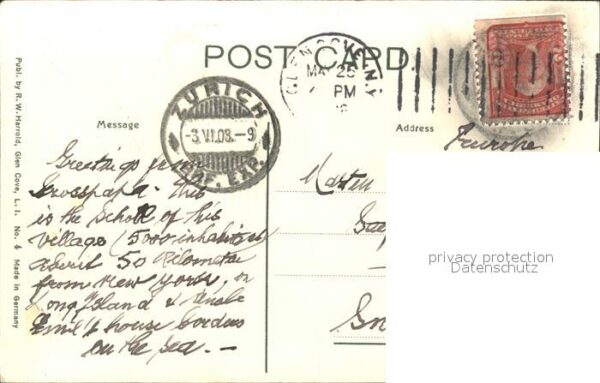 POST CARD
GLEN COVE, N.Y.
MAY 25
PM
ZÜRICH
-3.VI.08.-9
BRF. EXP.
Message
Address
Publ. by R. W. Harrold, Glen Cove, L. I. No. 4 Made in Germany
Europe
Greetings from
Grosspapa. This
is the Scholl of this
village (5000 inhabitants)
about 50 Kilometer
from New York, on
Long Island & Unkle
Emil's house borders
on the sea. —
Martin
privacy protection
Datenschutz